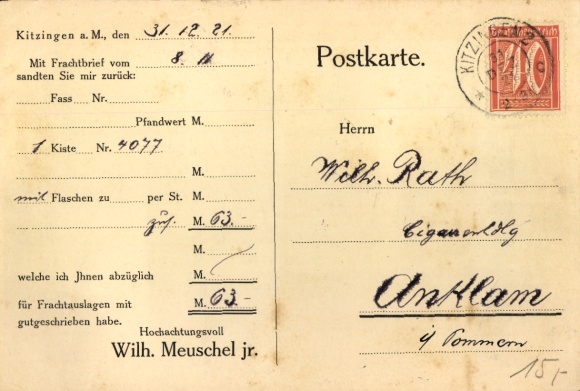 Kitzingen a. M., den 31. 12. 21.
Mit Frachtbrief vom 8. 11
sandten Sie mir zurück:
Fass Nr.
Pfandwert M.
1 Kiste Nr. 4077
M.
mit Flaschen zu per St. M.
zus. M. 63.-
M.
welche ich Jhnen abzüglich M.
für Frachtauslagen mit M. 63.-
gutgeschrieben habe.
Hochachtungsvoll
Wilh. Meuschel jr.
Postkarte.
KITZINGEN 2
40
Herrn
Wilh. Rath
Cigarrenhdlg
Anklam
i/ Pommern
15,-